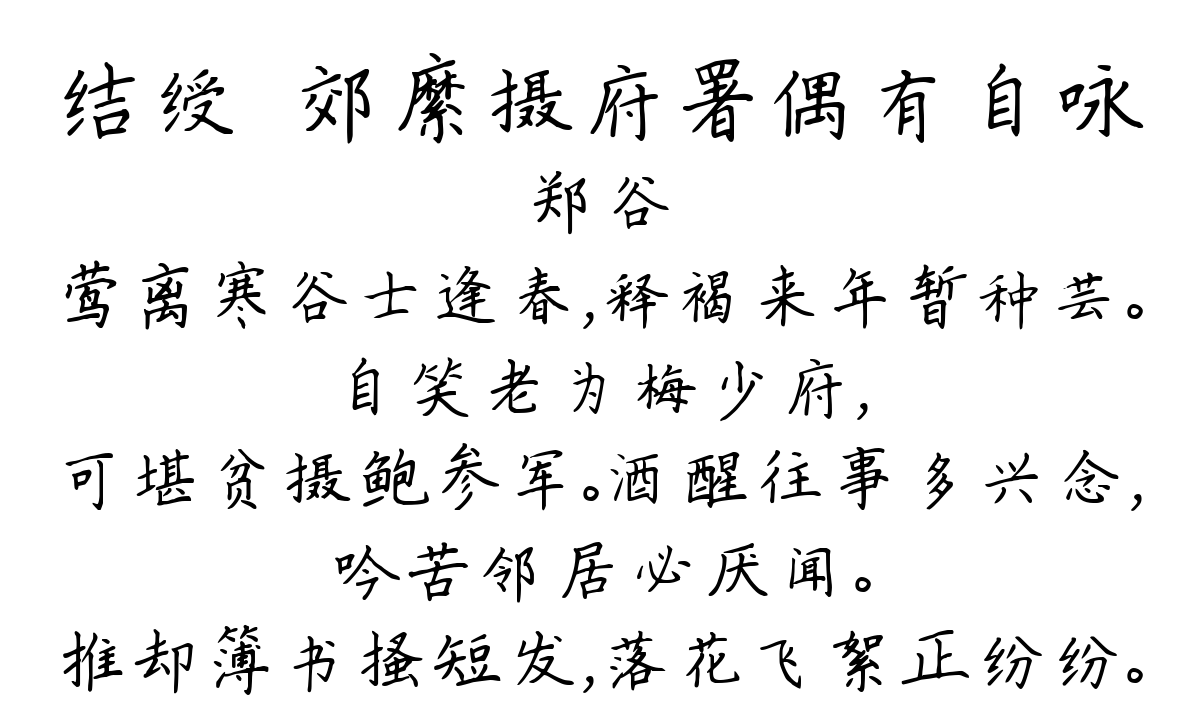 结绶 郊縻摄府署偶有自咏
郑谷
莺离寒谷士逢春,释褐来年暂种芸。
自笑老为梅少府,
可堪贫摄鲍参军。酒醒往事多兴念,
吟苦邻居必厌闻。
推却簿书搔短发,落花飞絮正纷纷。